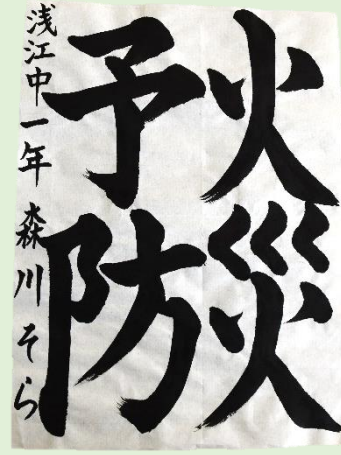 火災
予防
浅江中一年 森川そら